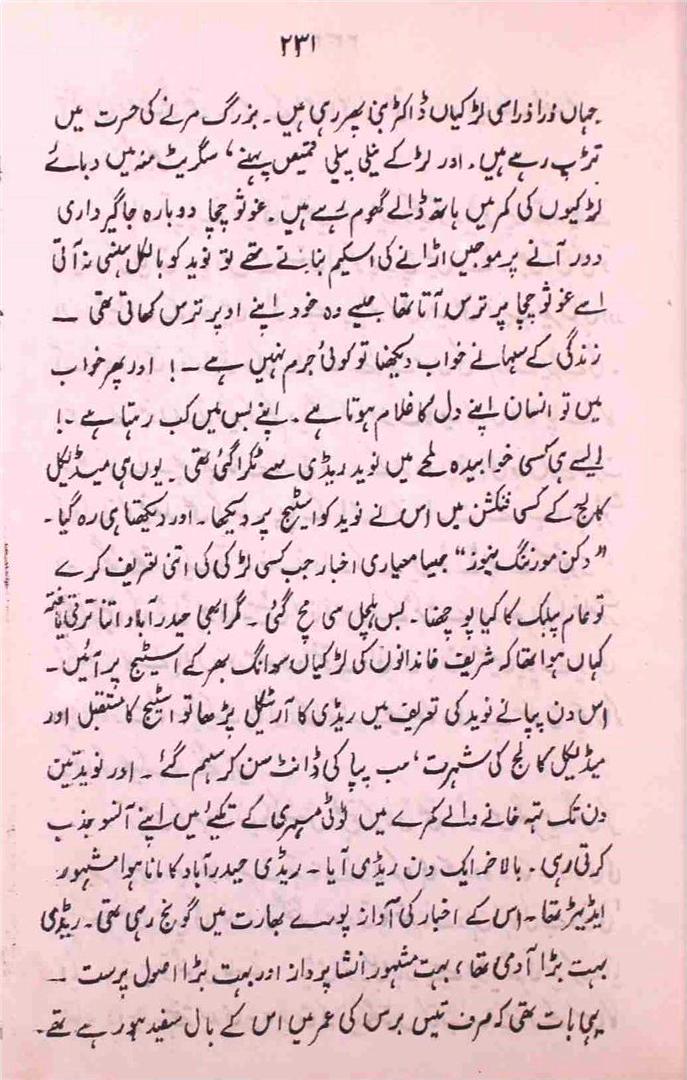 ۲۳۱
جہاں ذرا ذرا سی لڑکیاں ڈاکٹر بنی پھر رہی ہیں۔ بزرگ مرنے کی حسرت میں
تڑپ رہے ہیں۔ اور لڑکے نیلی پیلی قمیص پہنے، سگریٹ منہ میں دبائے
لڑکیوں کی کمر میں ہاتھ ڈالے گھوم رہے ہیں۔ غوثو چچا دوبارہ جاگیرداری
دور آنے پر موجیں اڑانے کی اسکیم بناتے تھے تو نوید کو بالکل ہنسی نہ آتی
اسے غوثو چچا پر ترس آتا تھا جیسے وہ خود اپنے اوپر ترس کھاتی تھی ــ
زندگی کے سہانے خواب دیکھنا تو کوئی جرم نہیں ہے ــ! اور پھر خواب
میں تو انسان اپنے دل کا غلام ہوتا ہے۔ اپنے بس میں کب رہتا ہے۔!
ایسے ہی کسی خوابیدہ لمحے میں نوید ریڈی سے ٹکرا گئی تھی۔ یوں ہی میڈیکل
کالج کے کسی فنکشن میں اس نے نوید کو اسٹیج پر دیکھا۔ اور دیکھتا ہی رہ گیا۔
”دکن مورننگ نیوز“ جیسا معیاری اخبار جب کسی لڑکی کی اتنی تعریف کرے
تو عام پبلک کا کیا پوچھنا۔ بس ہلچل سی مچ گئی۔ مگر ابھی حیدرآباد اتنا ترقی یافتہ
کہاں ہوا تھا کہ شریف خاندانوں کی لڑکیاں سوانگ بھر کے اسٹیج پر آئیں۔
اس دن پپا نے نوید کی تعریف میں ریڈی کا آرٹیکل پڑھا تو اسٹیج کا مستقبل اور
میڈیکل کالج کی شہرت، سب پپا کی ڈانٹ سن کر سہم گئے۔ اور نوید تین
دن تک تہہ خانے والے کمرے میں ٹوٹی مسہری کے تکیے میں اپنے آنسو جذب
کرتی رہی۔ بالاخر ایک دن ریڈی آیا۔ ریڈی حیدرآباد کا مانا ہوا مشہور
ایڈیٹر تھا۔ اس کے اخبار کی آواز پورے بھارت میں گونج رہی تھی۔ ریڈی
بہت بڑا آدمی تھا، بہت مشہور انشا پرداز اور بہت بڑا اصول پرست ــ
یہی بات تھی کہ صرف تیس برس کی عمر میں اس کے بال سفید ہو رہے تھے۔